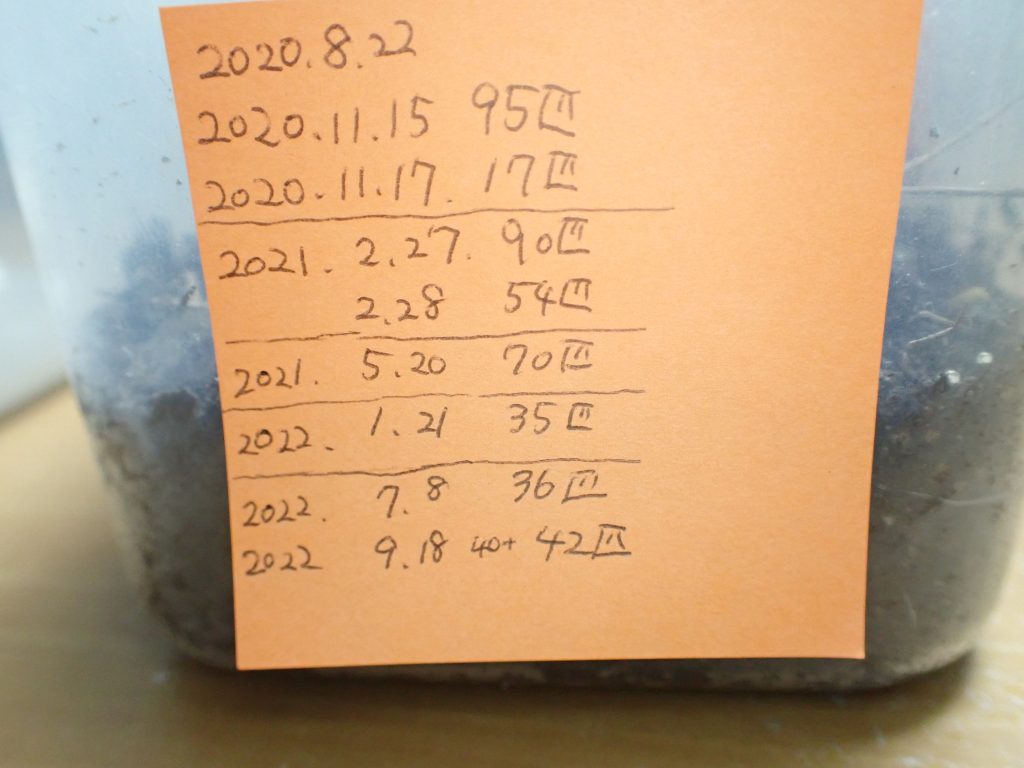 2020.8.22
2020.11.15 95匹
2020.11.17. 17匹
2021. 2.27. 90匹
2.28 54匹
2021. 5.20 70匹
2022. 1.21 35匹
2022. 7.8 36匹
2022 9.18 40+ 42匹